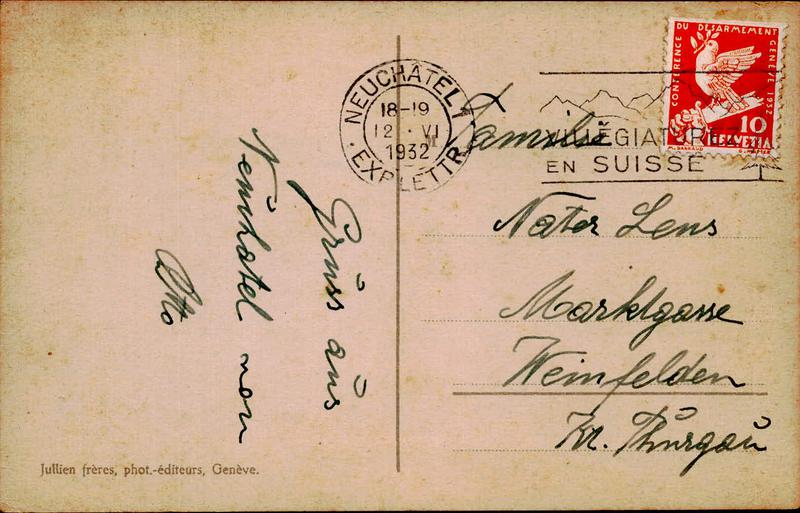 Gruss aus
Neuhâtel von
Otto
Jullien frères, phot.-éditeurs, Genève.
NEUCHÂTEL 1
18-19
12. VI
1932
EXP. LETTR.
VILLÉGIATUREZ
EN SUISSE
CONFÉRENCE DU DÉSARMEMENT GENÈVE 1932
10
HELVETIA
Familie
Nater Lens
Marktgasse
Weinfelden
Kt. Thurgau